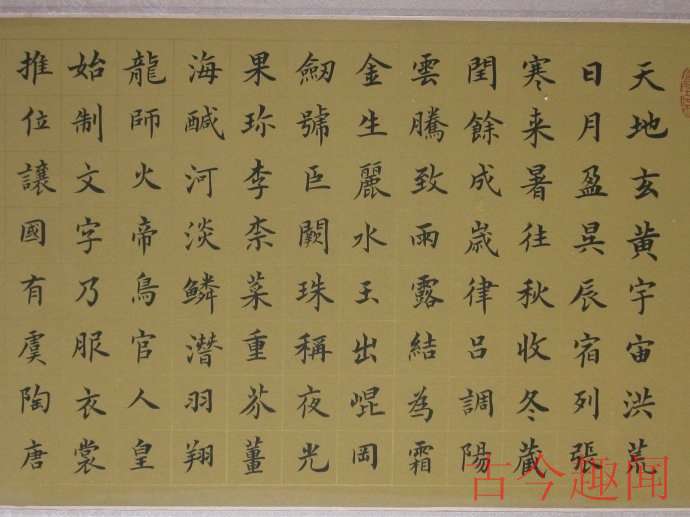 天地玄黄宇宙洪荒
日月盈昃辰宿列張
寒来暑往秋收冬藏
閏餘成歲律吕調陽
雲騰致雨露結為霜
金生麗水玉出崐岡
劒號巨闕珠稱夜光
果珎李柰菜重芥薑
海鹹河淡鱗潛羽翔
龍師火帝鳥官人皇
始制文字乃服衣裳
推位讓國有虞陶唐
古今趣闻